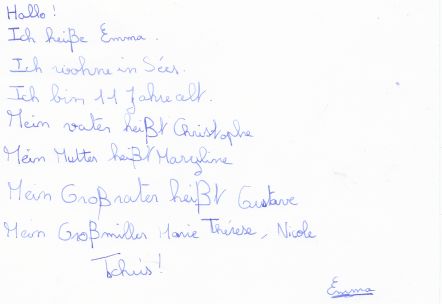 Hallo!
Ich heiße Emma.
Ich wohne in Sées.
Ich bin 11 Jahre alt.
Mein vater heißt Christophe
Mein Mutter heißt Maryline
Mein Großvater heißt Gustave
Mein Großmutter Marie Thérèse, Nicole
Tschüs!
Emma